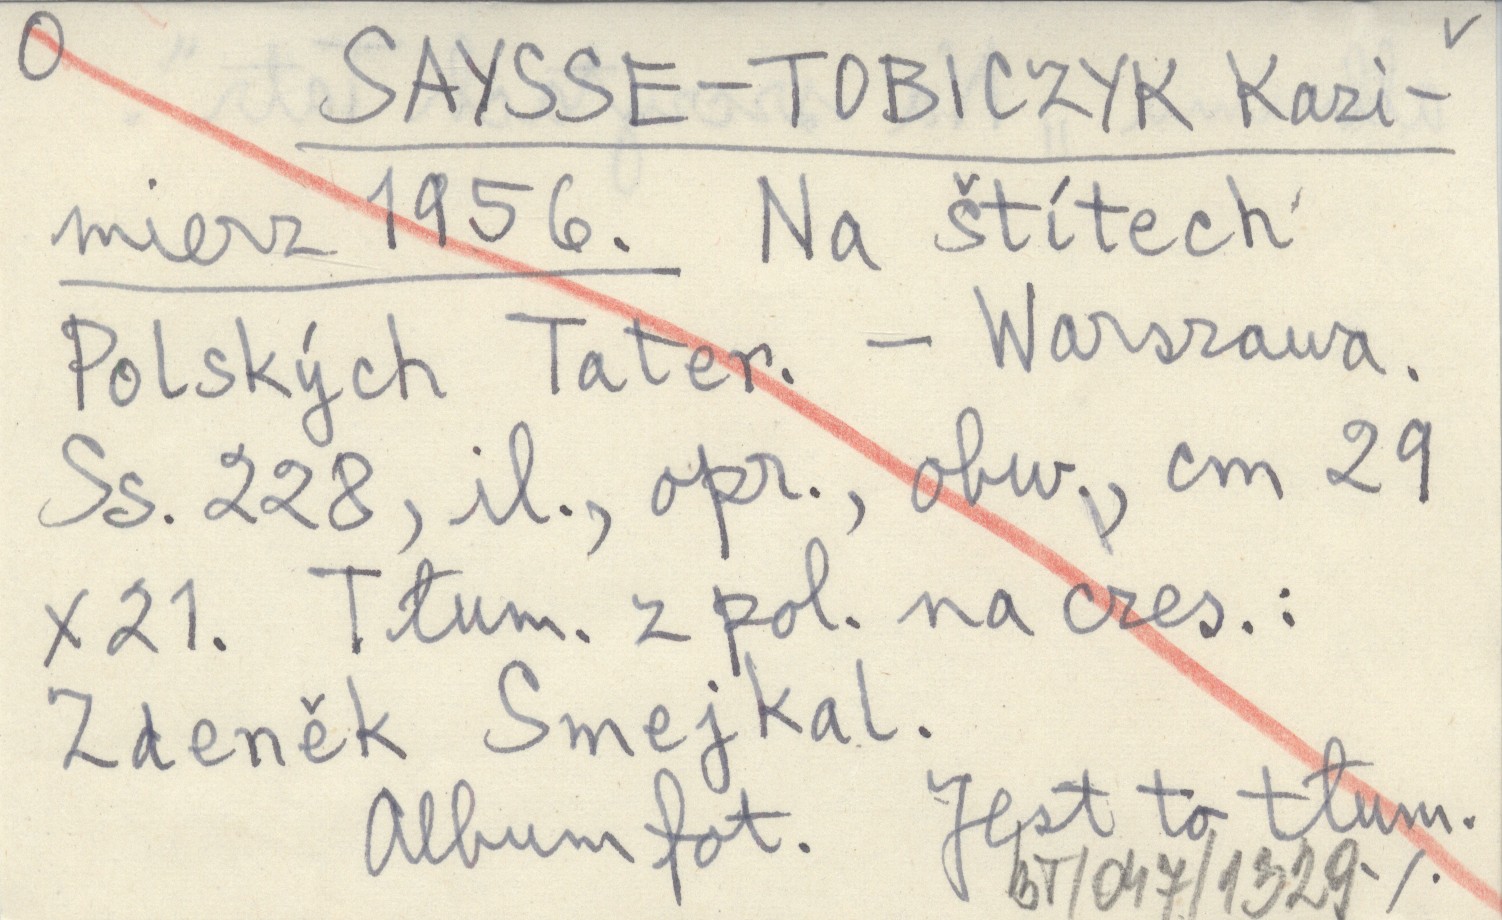 O SAYSSE-TOBICZYK Kazi- v
mierz 1956. Na štítech
Polských Tater. - Warszawa.
Ss. 228, il., opr., obw., cm 29
x 21. Tłum. z pol. na czes.:
Zdeněk Smejkal.
Album fot. Jest to tłum.
BT/047/1329 /.